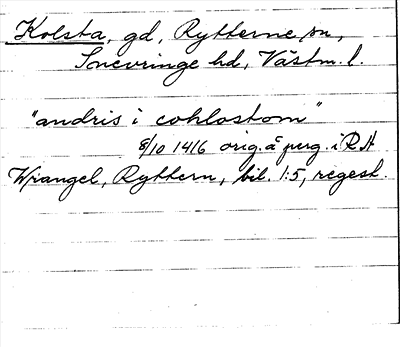 Kolsta, gd, Rytterne sn,
Snevringe hd, Västm. l.
"andris i cohlostom"
8/10 1416 orig. å perg. i RA
Wrangel, Ryttern, bil. 1:5, regest.